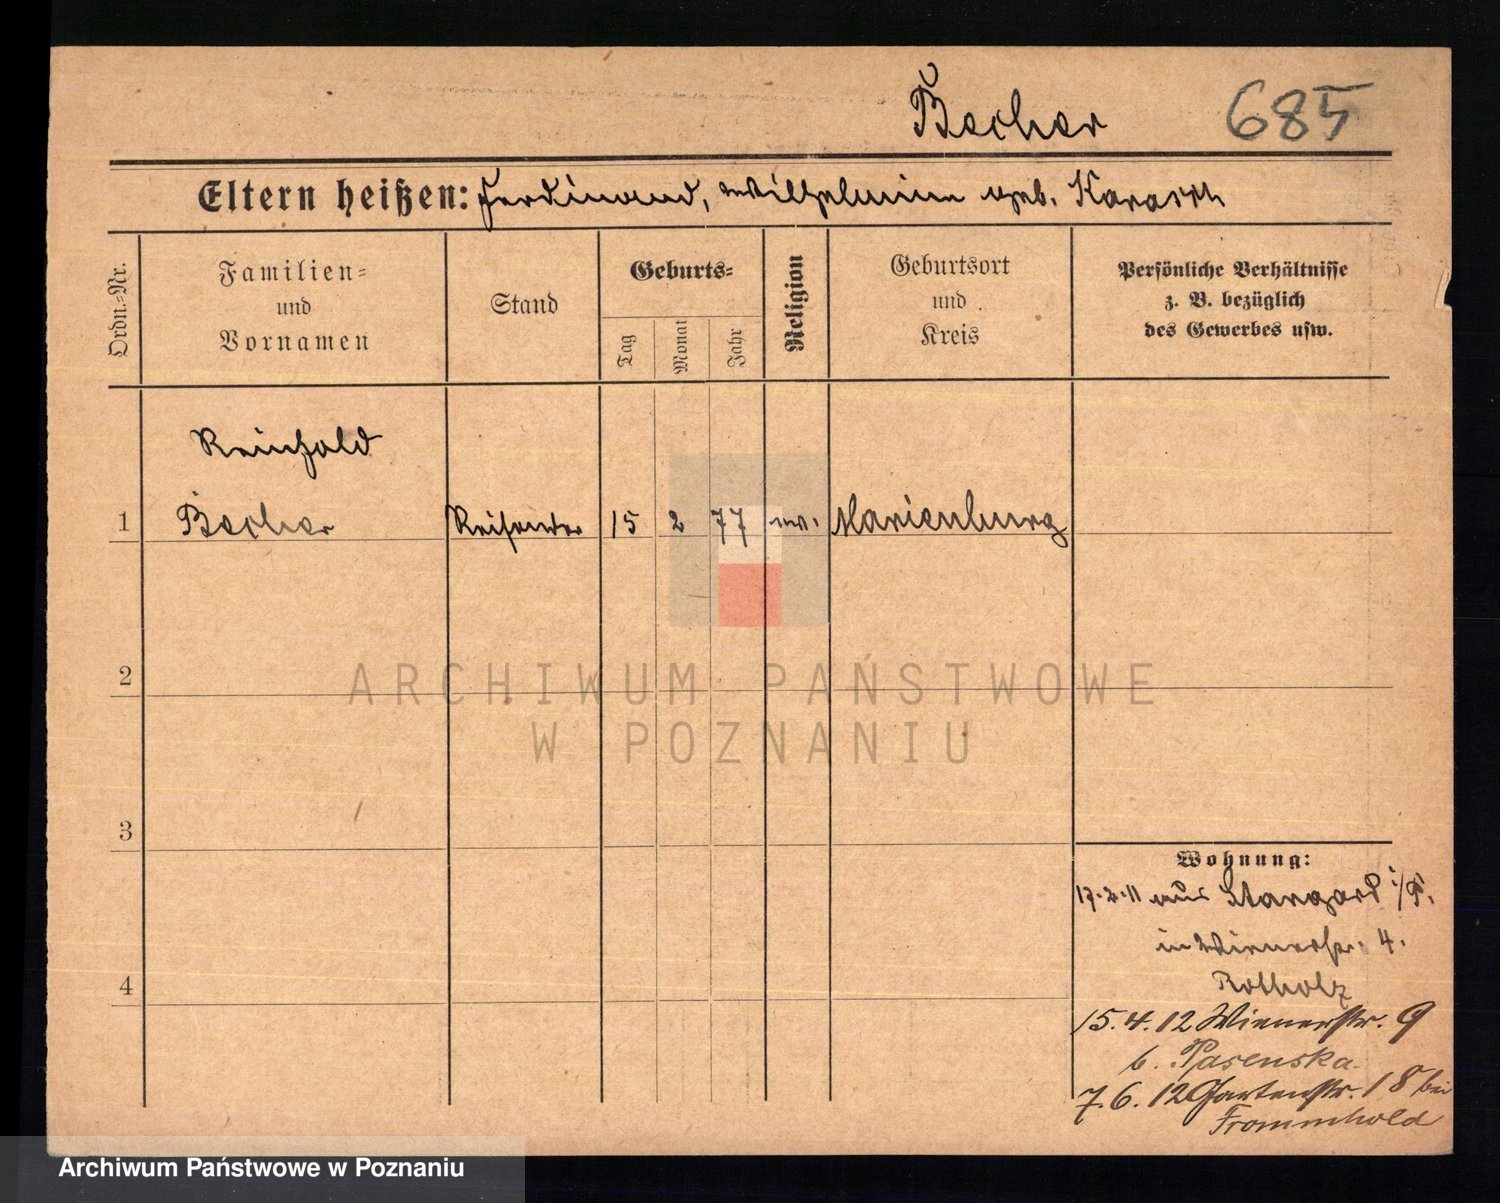 Becher 685
Eltern heißen: Ferdinand, Wilhelmine geb. Karasch
Ordn.-Nr.
Familien-
und
Vornamen
Stand
Geburts-
Tag
Monat
Jahr
Religion
Geburtsort
und
Kreis
Persönliche Verhältnisse
z. B. bezüglich
des Gewerbes usw.
Reinhold
1 Becher Reisender 15 2 77 ev. Marienburg
2
3
4
Wohnung:
17.2.11 aus Stargard i/P.
in Wienerstr. 4.
Rotholz
15.4.12 Wienerstr. 9
b. Pasenska
7.6.12 Gartenstr. 18 bei
Frommhold
ARCHIWUM PAŃSTWOWE
W POZNANIU
Archiwum Państwowe w Poznaniu